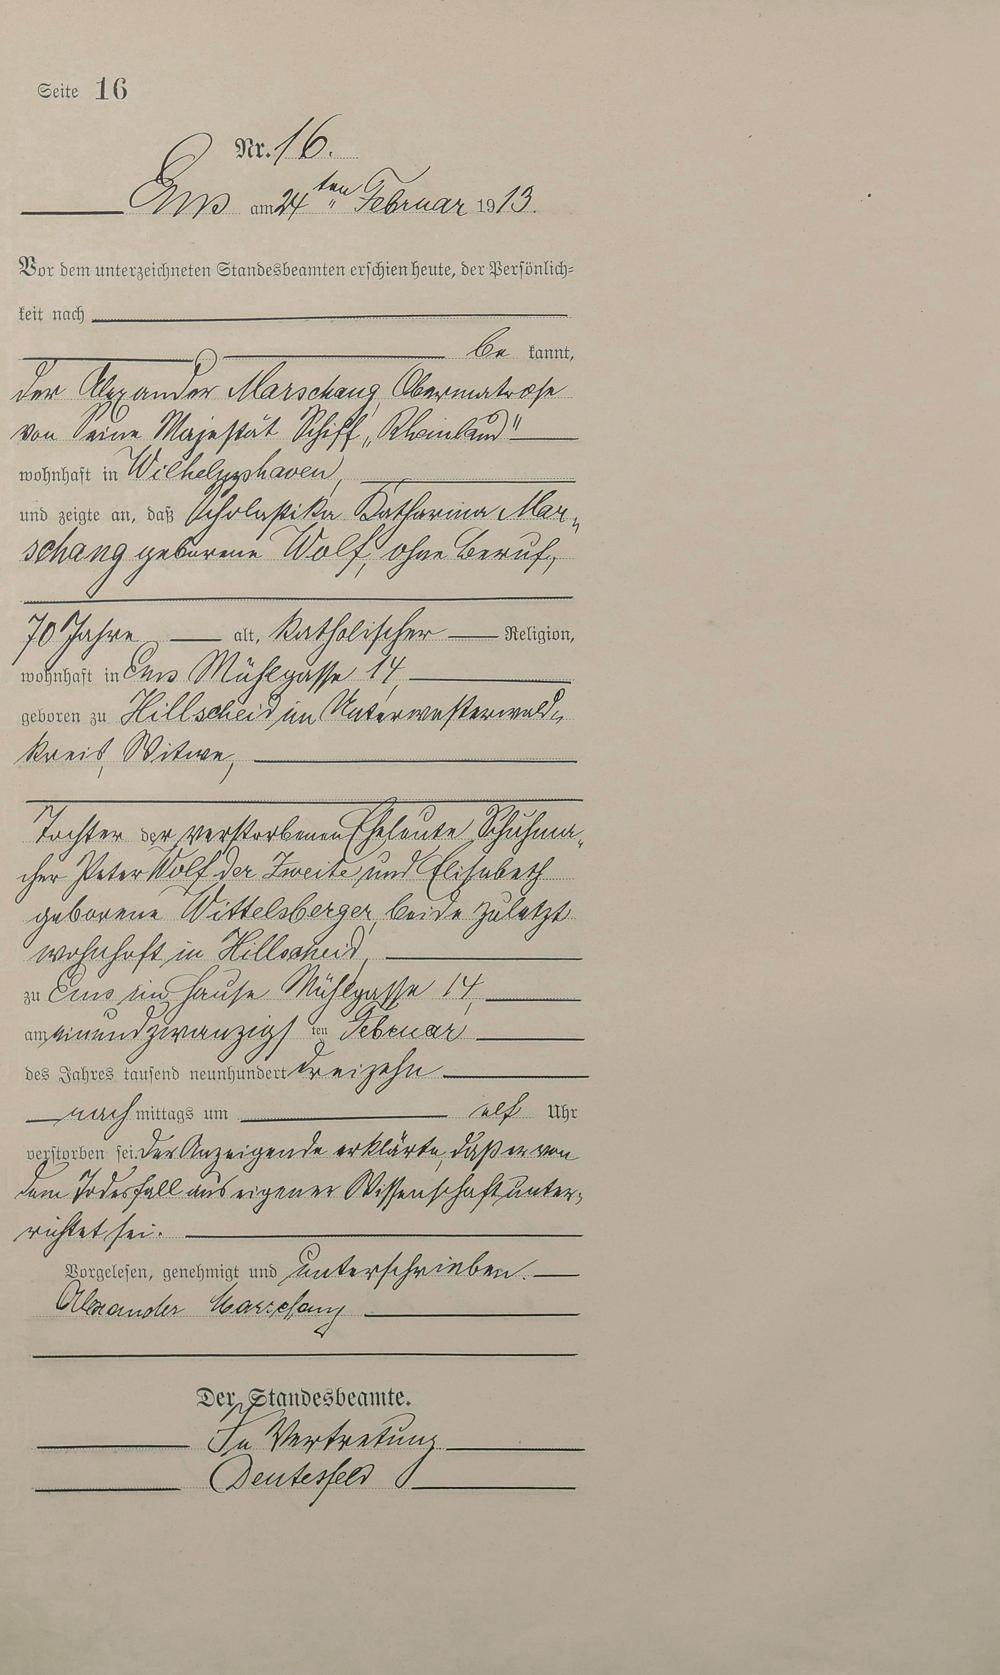 Seite 16
Nr. 16.
Ems am 24ten Februar 1913.
Vor dem unterzeichneten Standesbeamten erschien heute, der Persönlich=
keit nach
be kannt,
der Alexander Marschang, Obermatrose
von Seine Majestät Schiff „Rheinland"
wohnhaft in Wilhelmshaven,
und zeigte an, daß Scholastika Katharina Mar„
schang geborene Wolf, ohne Beruf,
70 Jahre alt, katholischer Religion,
wohnhaft in Ems Mühlgasse 14,
geboren zu Hillscheid im Unterwesterwald„
kreis, Witwe,
Tochter der verstorbenen Eheleute Schuhma„
cher Peter Wolf der Zweite und Elisabeth
geborene Wittelsberger, beide zuletzt
wohnhaft in Hillscheid,
zu Ems im Hause Mühlgasse 14,
am einundzwanzigsten Februar
des Jahres tausend neunhundert dreizehn
nach mittags um elf Uhr
verstorben sei. Der Anzeigende erklärte, daß er von
dem Todesfall aus eigener Wissenschaft unter„
richtet sei.
Vorgelesen, genehmigt und unterschrieben.
Alexander Marschang
Der Standesbeamte.
In Vertretung